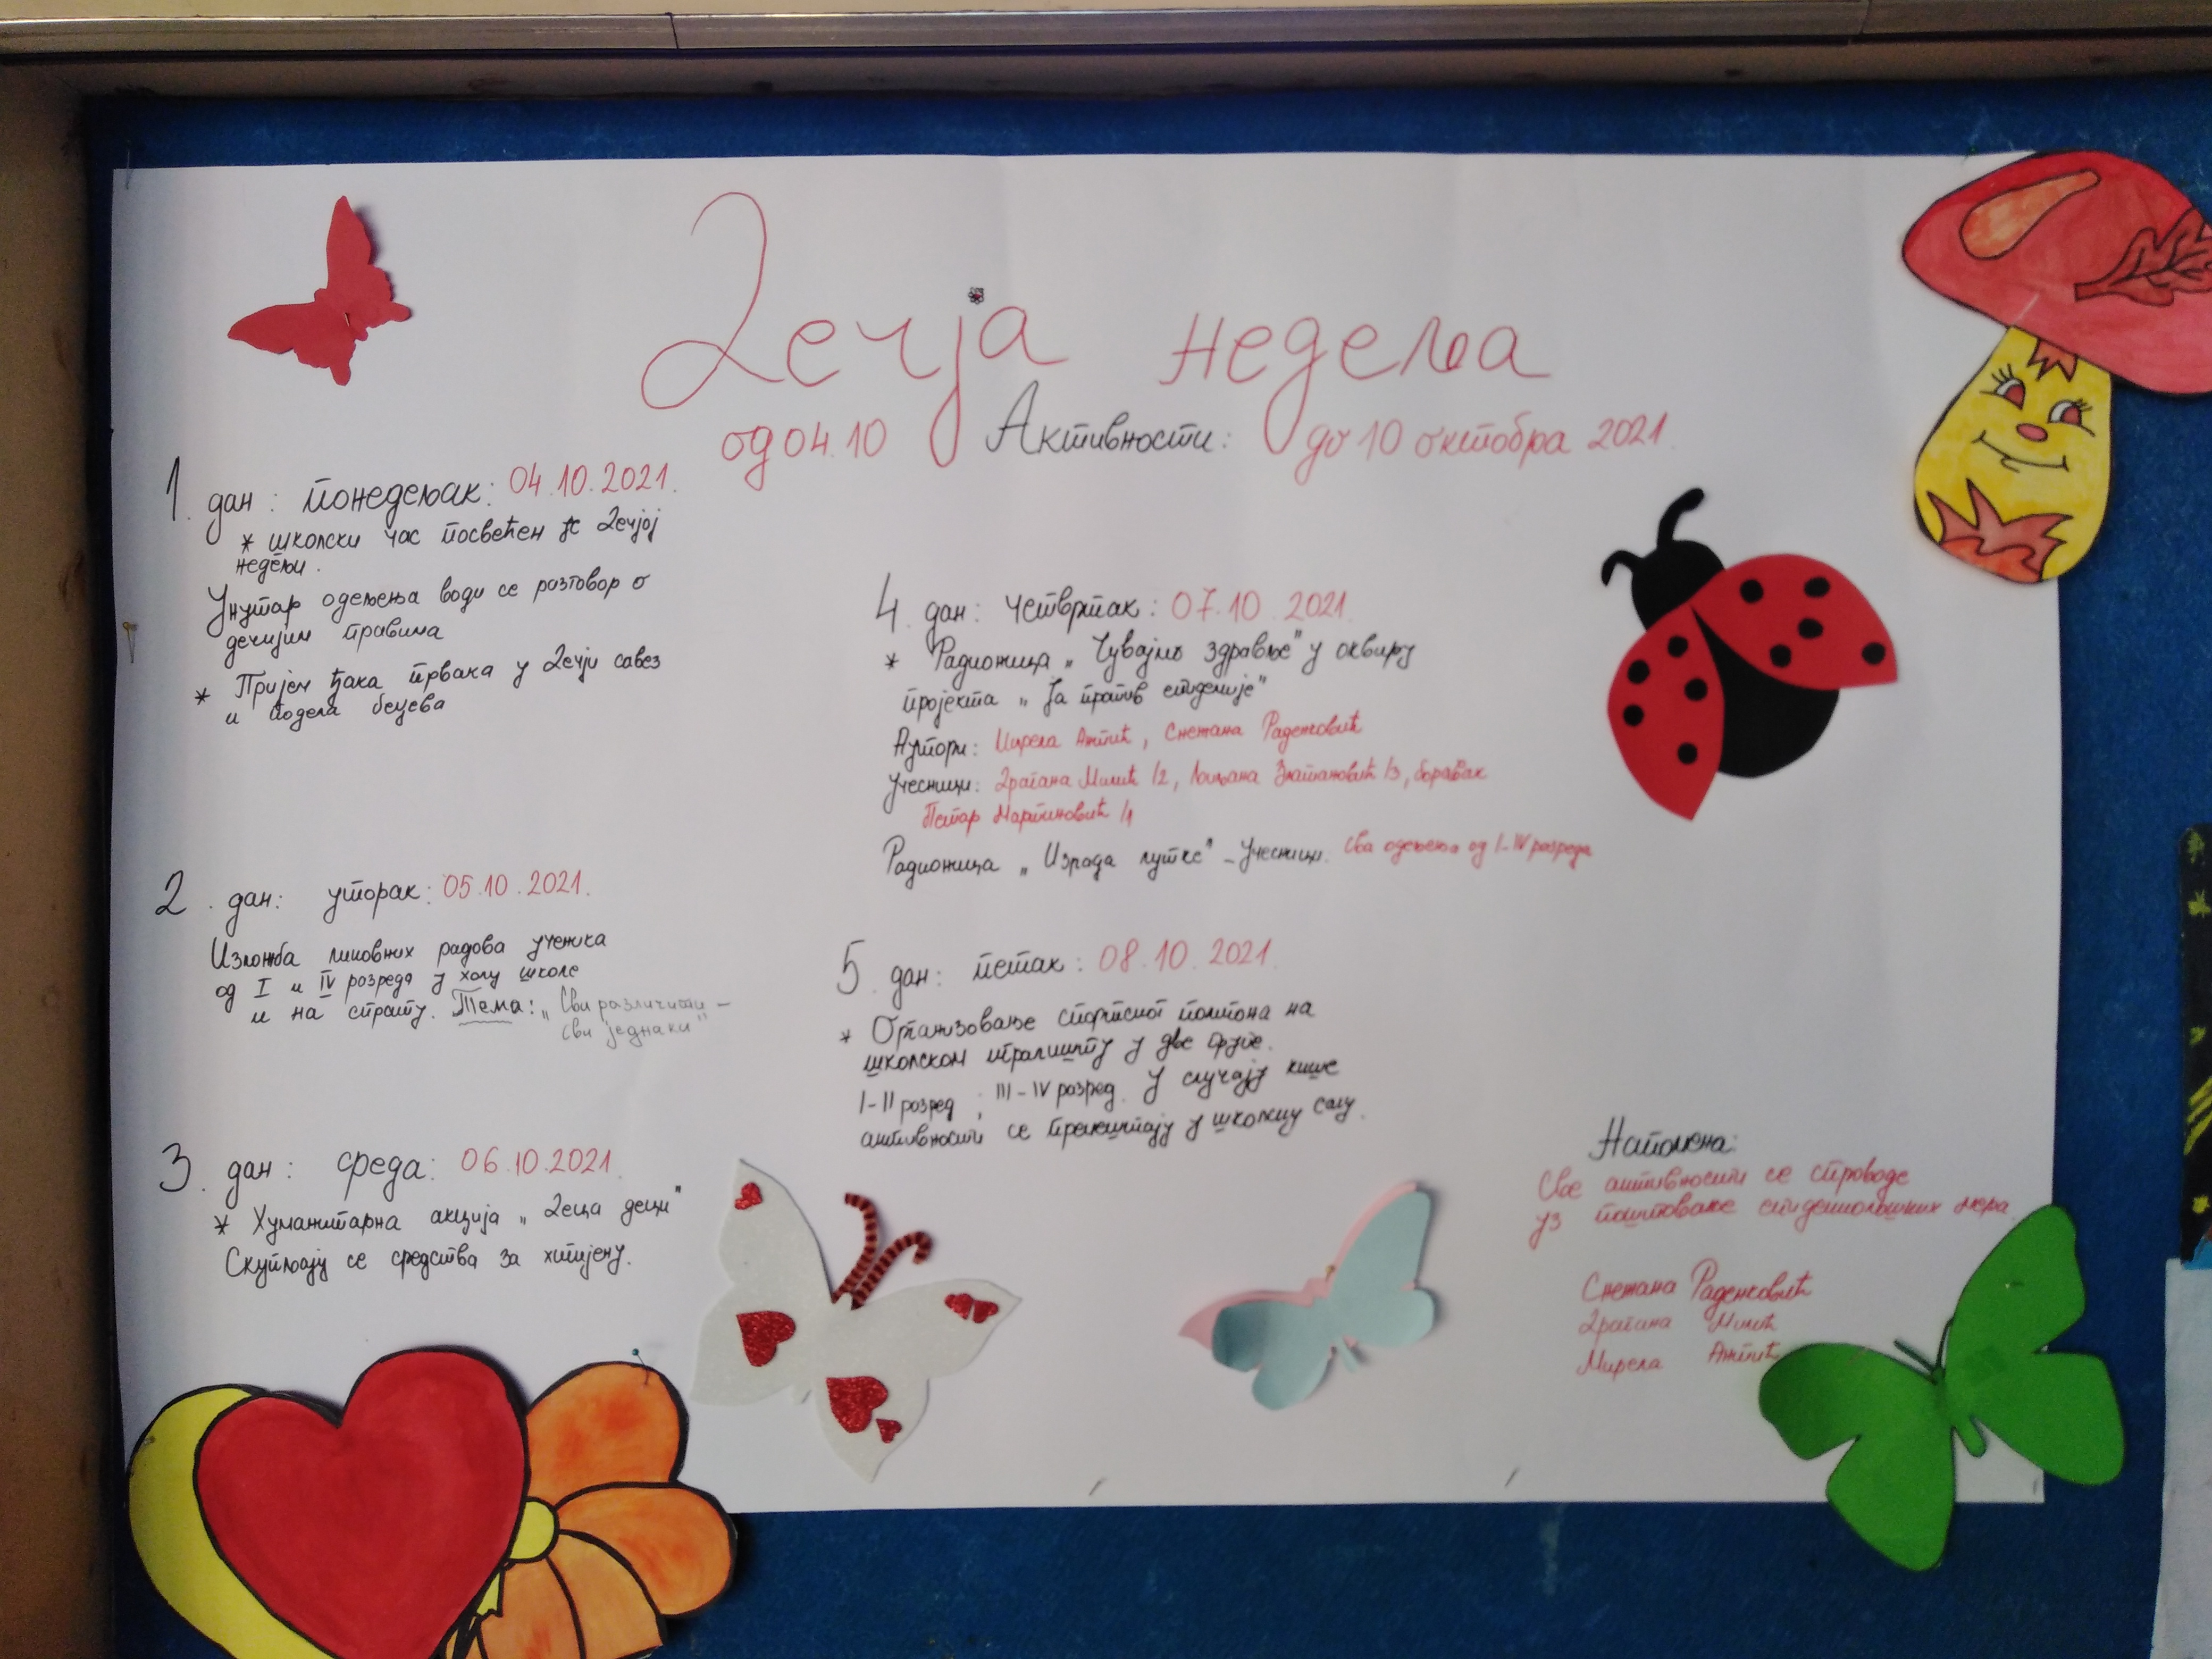 Дечја недеља
од 04.10 Активности: до 10 октобра 2021.
1. дан: понедељак: 04.10.2021.
* школски час посвећен је Дечјој
недељи.
Унутар одељења води се разговор о
дечијим правима
* Пријем ђака првака у Дечји савез
и подела беџева
2. дан: уторак: 05.10.2021.
Изложба ликовних радова ученика
од I и IV разреда у холу школе
и на спрату. Тема: „Сви различити –
сви једнаки"
3. дан: среда: 06.10.2021.
* Хуманитарна акција „Деца деци"
Скупљају се средства за хигијену.
4. дан: четвртак: 07.10.2021.
* Радионица „Чувајмо здравље" у оквиру
пројекта „Ја против епидемије"
Аутори: Мирела, Снежана Раденковић
Учесници: Драгана Милић /2, Љиљана Златановић /3, боравак
Петар Мартиновић /1
Радионица „Израда лутке" – Учесници: Сва одељења од I-IV разреда
5. дан: петак: 08.10.2021.
* Организовање спортског полигона на
школском игралишту у две групе.
I-II разред; III-IV разред. У случају кише
активности се премештају у школску салу.
Напомена:
Све активности се спроводе
уз поштовање епидемиолошких мера
Снежана Раденковић
Драгана Милић
Мирела